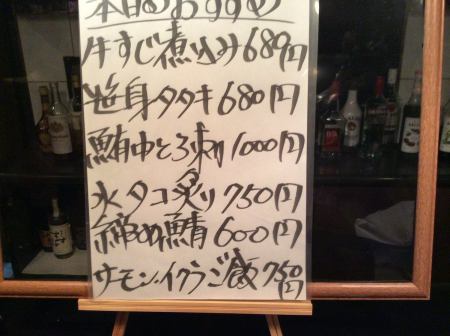 本日のおすすめ
牛すじ煮込み680円
笹身タタキ680円
鮪中とろ刺1000円
水タコ炙り750円
締め鯖600円
サーモン・イクラジ飯750円